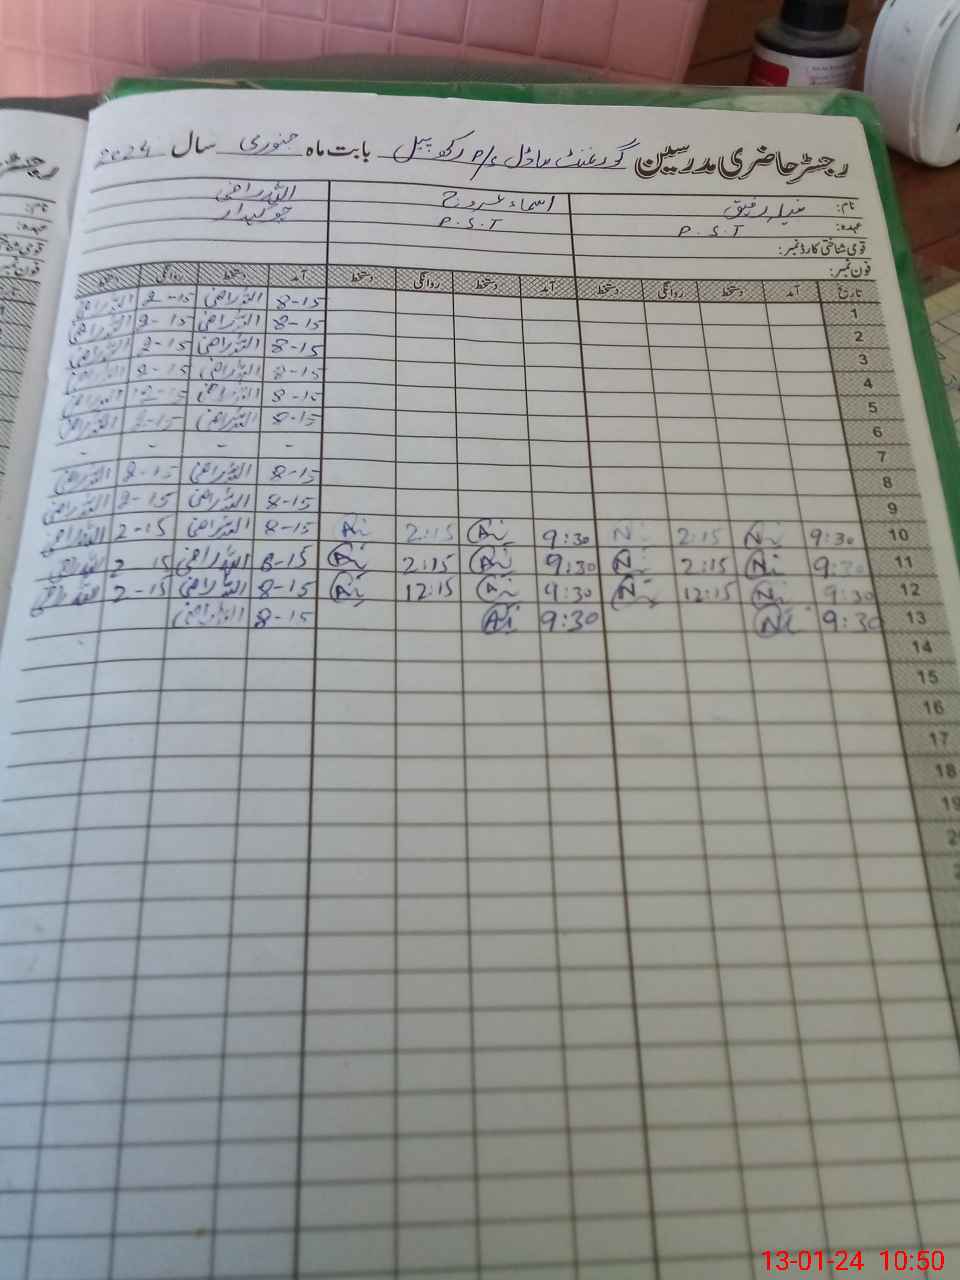 رجسٹر حاضری مدرسین گورنمنٹ ماڈل p/s رکھ پیل بابت ماہ جنوری سال 2024
نام: رفیق اسماء عروج اللہ راضی
عہدہ: P.S.T P.S.T چوکیدار
قومی شناختی کارڈ نمبر:
فون نمبر:
تاریخ آمد دستخط روانگی دستخط آمد دستخط روانگی دستخط آمد دستخط روانگی دستخط
1 8-15 اللہ راضی 2-15 اللہ راضی
2 8-15 اللہ راضی 2-15 اللہ راضی
3 8-15 اللہ راضی 2-15 اللہ راضی
4 8-15 اللہ راضی 2-15 اللہ راضی
5 8-15 اللہ راضی اللہ راضی
6 8-15 اللہ راضی 2-15 اللہ راضی
7 - - - -
8 8-15 اللہ راضی 2-15 اللہ راضی
9 8-15 اللہ راضی 2-15 اللہ راضی
10 9:30 Ni 2:15 Ni 9:30 Ai 2:15 Ai 8-15 اللہ راضی 2-15 اللہ راضی
11 9:30 Ni 2:15 Ni 9:30 Ai 2:15 Ai 8-15 اللہ راضی 2-15 اللہ راضی
12 9:30 Ni 12:15 Ni 9:30 Ai 12:15 Ai 8-15 اللہ راضی 2-15 اللہ راضی
13 9:30 Ni 9:30 Ai 8-15 اللہ راضی
14
15
16
17
18
19
13-01-24 10:50